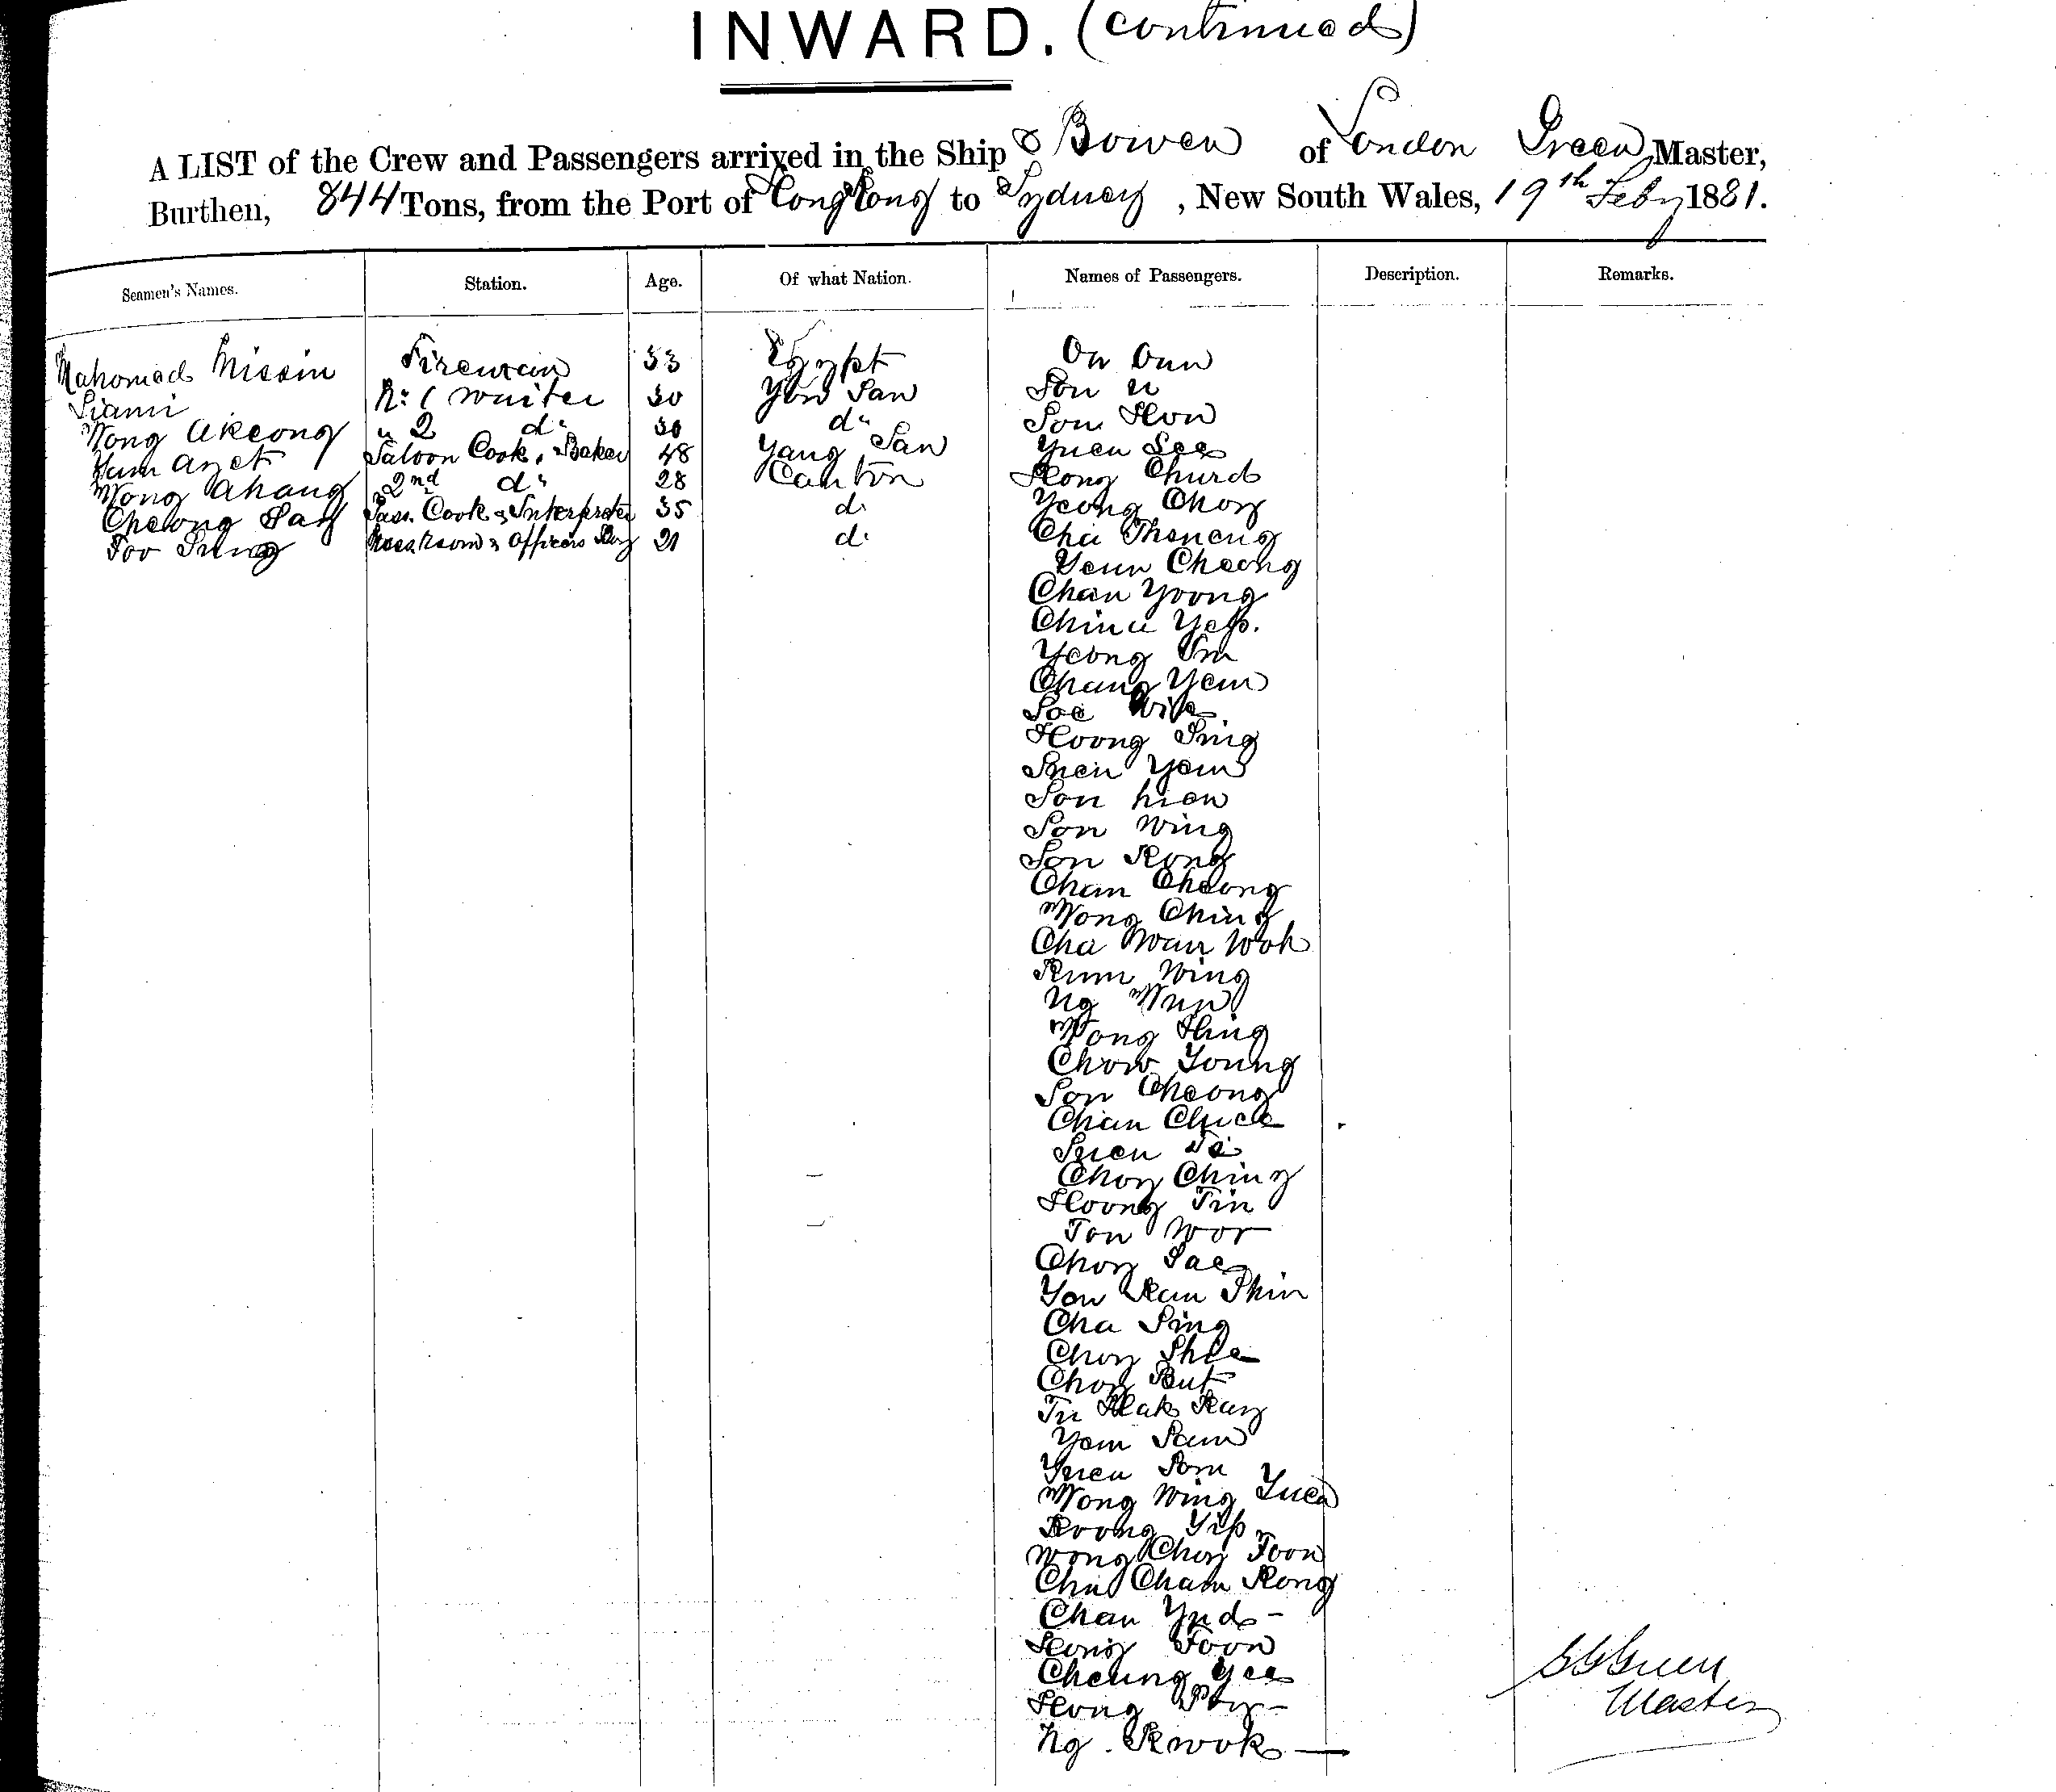 INWARD. (continued)
A LIST of the Crew and Passengers arrived in the Ship Bowen of London Green Master,
Burthen, 844 Tons, from the Port of Hong Kong to Sydney, New South Wales, 19th Feby 1881.
Seamen's Names. Station. Age. Of what Nation. Names of Passengers. Description. Remarks.
Mahomed Nissin Fireman 33 Egypt On Oun
Siami No 1 Waiter 30 San Son
Wong Akeong " 2 do 30 do Son Hon
Saloon Cook, Baker 48 Yang San Yuen See
Wong Ahang 2nd do 28 Canton Hong
Cheong Pass. Cook & Interpreter 35 do Yeong Choy
Foo Officers Boy 21 do
Yeun Cheong
Chan Yoong
Yep.
Yeong
Chang Yem
Hoong Sing
Yem
Son
Son Wing
Son Kong
Chan Cheong
Wong Ching
Cha Wan Woh
Kum Wing
Ng
Wong Hing
Chow Young
Son Cheong
Chan
Suen
Choy Ching
Hoong Tin
Ton Wor
Choy
You Kam Shin
Cha Sing
Choy
Choy But
Hak Kay
Yom Sam
Yuen Som
Wong Wing Yuen
Koong Yip
Wong Choy Foon
Cham Kong
Chan
Foon
Cheung Yee
Hong
Ng. Kwok —
Green
Master